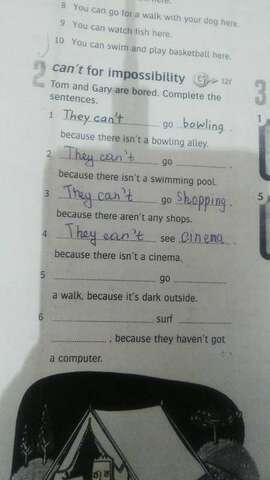 8 You can go for a walk with your dog here.
9 You can watch fish here.
10 You can swim and play basketball here.
2 can't for impossibility 12f
Tom and Gary are bored. Complete the
sentences.
1 They can't go bowling.
because there isn't a bowling alley.
2 They can't go
because there isn't a swimming pool.
3 They can't go Shopping.
because there aren't any shops.
4 They can't see cinema
because there isn't a cinema.
5 go
a walk, because it's dark outside.
6 surf
, because they haven't got
a computer.
3
1
5